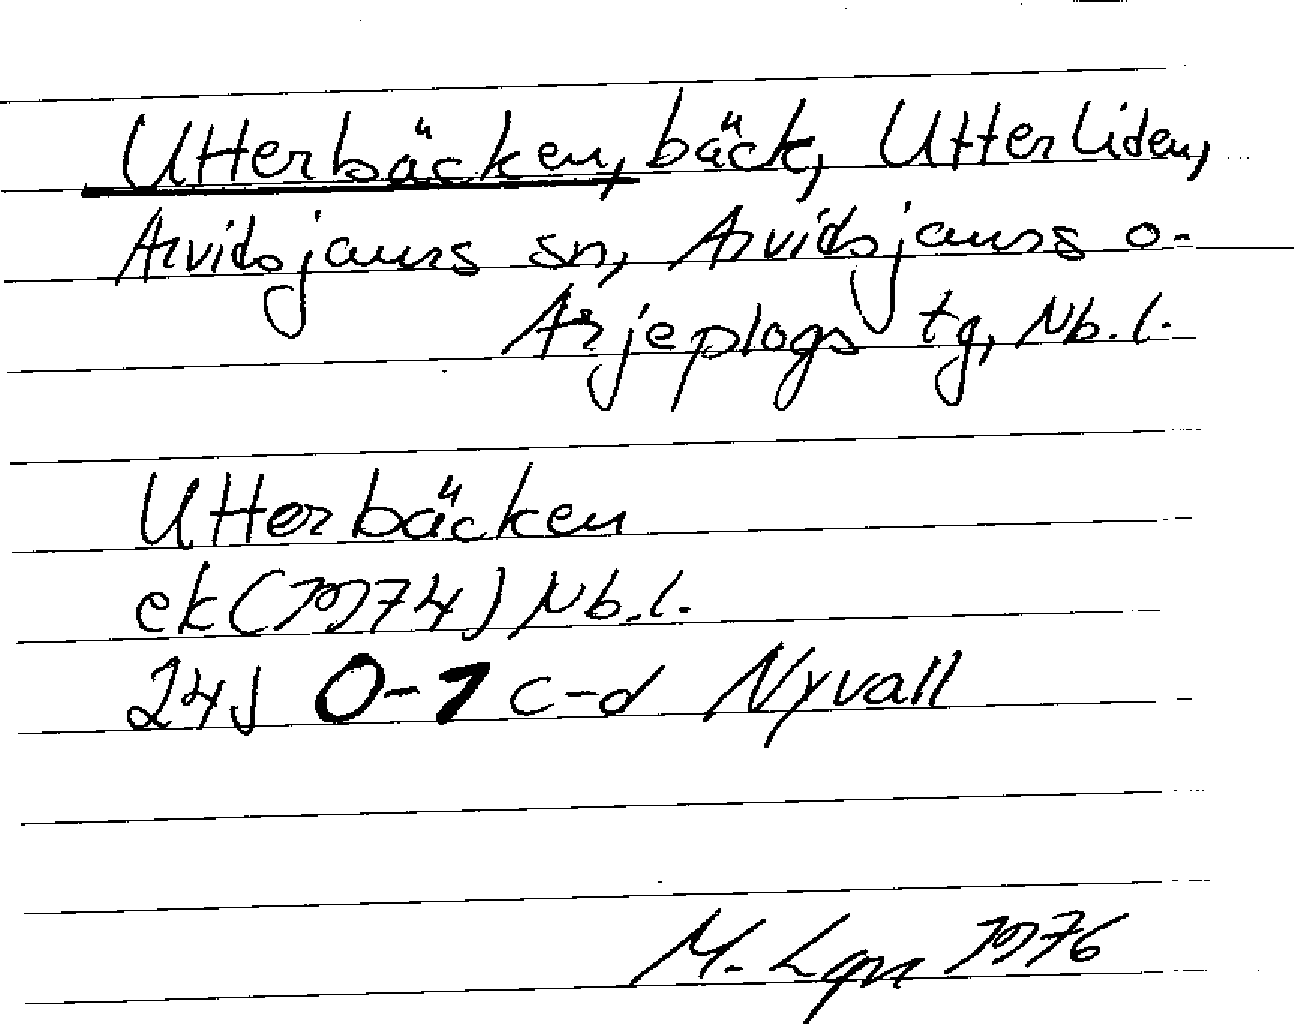 Utterbäcken, bäck, Utterliden,
Arvidsjaurs sn, Arvidsjaurs o.
Arjeplogs tg, Nb.l.
Utterbäcken
ek (1974) Nb.l.
24J 0-1 c-d Nyvall
M. Lgn 1976